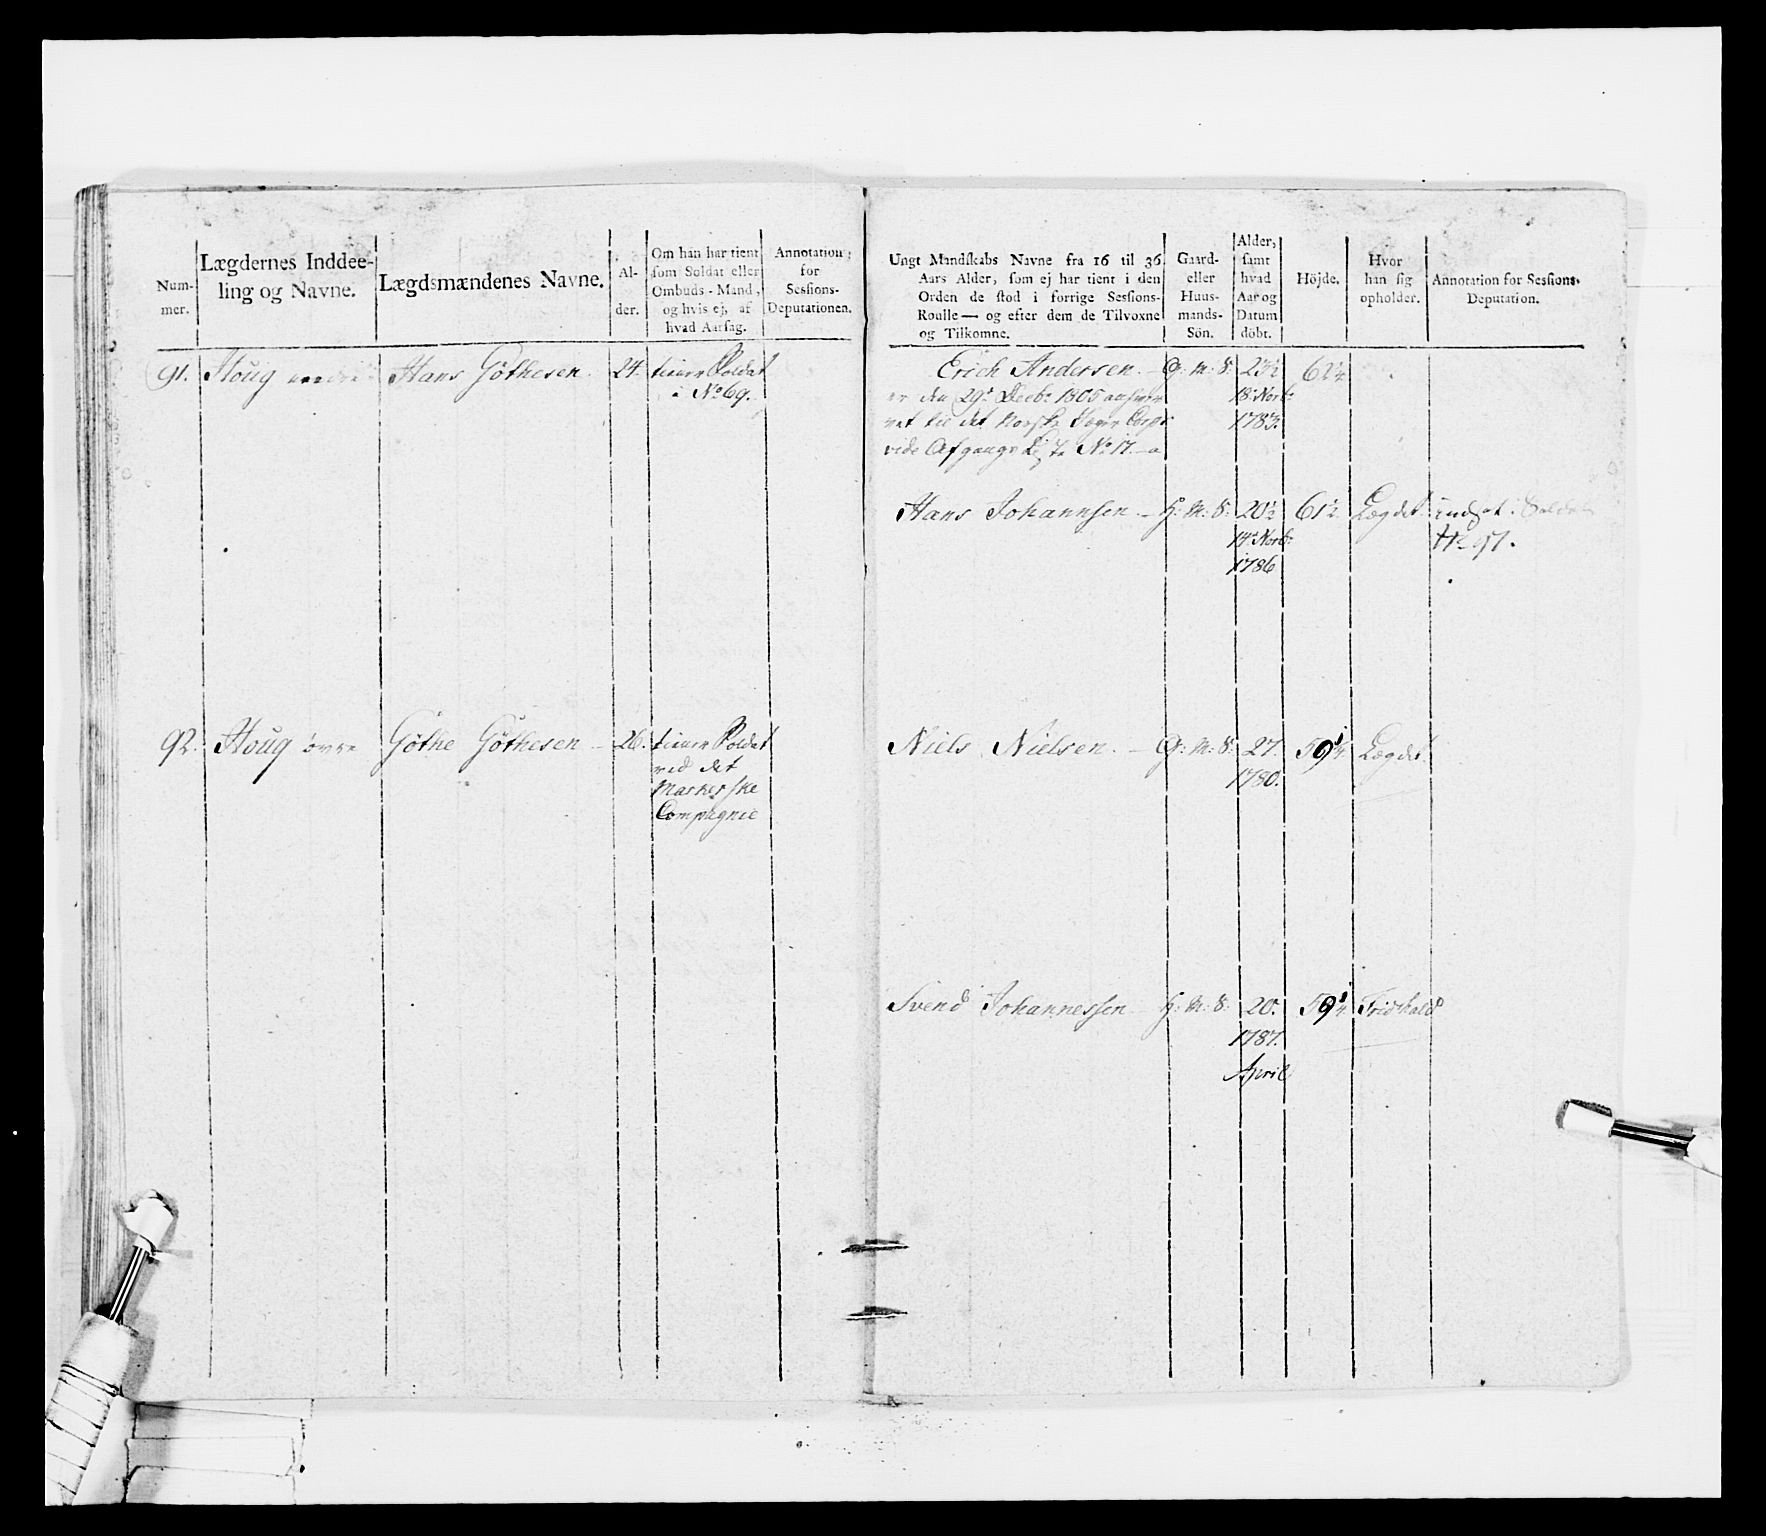 Num-
mer.
Lægdernes Inddee-
ling og Navne.
Lægdsmændenes Navne.
Al-
der.
Om han har tient
som Soldat eller
Ombuds-Mand,
og hvis ej, af
hvad Aarsag.
Annotation
for
Sessions-
Deputationen.
91. Houg nedre Hans Göthesen. 24. tiener Soldat
i No 69.
92. Houg övre Göthe Göthesen - 26. tiener Soldat
ved det
Markerske
Compagnie
Ungt Mandskabs Navne fra 16 til 36
Aars Alder, som ej har tient i den
Orden de stod i forrige Sessions-
Roulle — og efter dem de Tilvoxne
og Tilkomne.
Gaard-
eller
Huus-
mands-
Sön.
Alder,
samt
hvad
Aar og
Datum
döbt.
Höjde.
Hvor
han sig
opholder.
Annotation for Sessions-
Deputation.
Erich Andersen. - G: M: S: 23½ 62¼
er den 29de Decbr 1805 18 Novbr
til det Norske Jæger Corps 1783.
vide Afgangs Liste No 17
Hans Johannsen - H: M: S: 20½ 61½ Lægdet indsat i
17 Novbr No 97.
1786
Niels Nielsen. - G: M: S: 27. 59¼ Lægdet
1780.
Svend Johannessen - H: M: S: 20. 59¼ Fridrhald
1787.
April